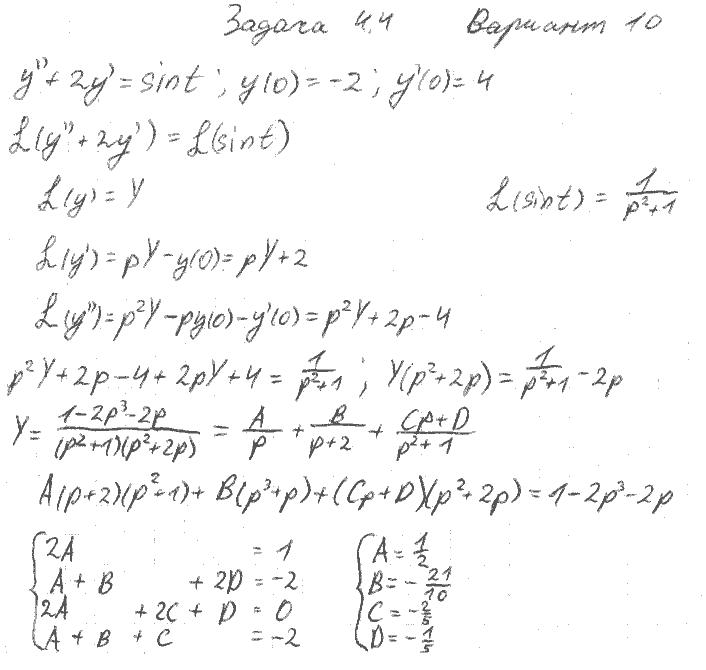 Задача 4.4 Вариант 10
y'' + 2y' = sint ; y(0) = -2 ; y'(0) = 4
ℒ(y'' + 2y') = ℒ(sint)
ℒ(y) = Y ℒ(sint) = 1/(p²+1)
ℒ(y') = pY - y(0) = pY + 2
ℒ(y'') = p²Y - py(0) - y'(0) = p²Y + 2p - 4
p²Y + 2p - 4 + 2pY + 4 = 1/(p²+1) ; Y(p²+2p) = 1/(p²+1) - 2p
Y = (1-2p³-2p)/((p²+1)(p²+2p)) = A/p + B/(p+2) + (Cp+D)/(p²+1)
A(p+2)(p²+1) + B(p³+p) + (Cp+D)(p²+2p) = 1-2p³-2p
{ 2A = 1 { A = 1/2
A + B + 2D = -2 B = -21/10
2A + 2C + D = 0 C = -2/5
A + B + C = -2 D = -1/5